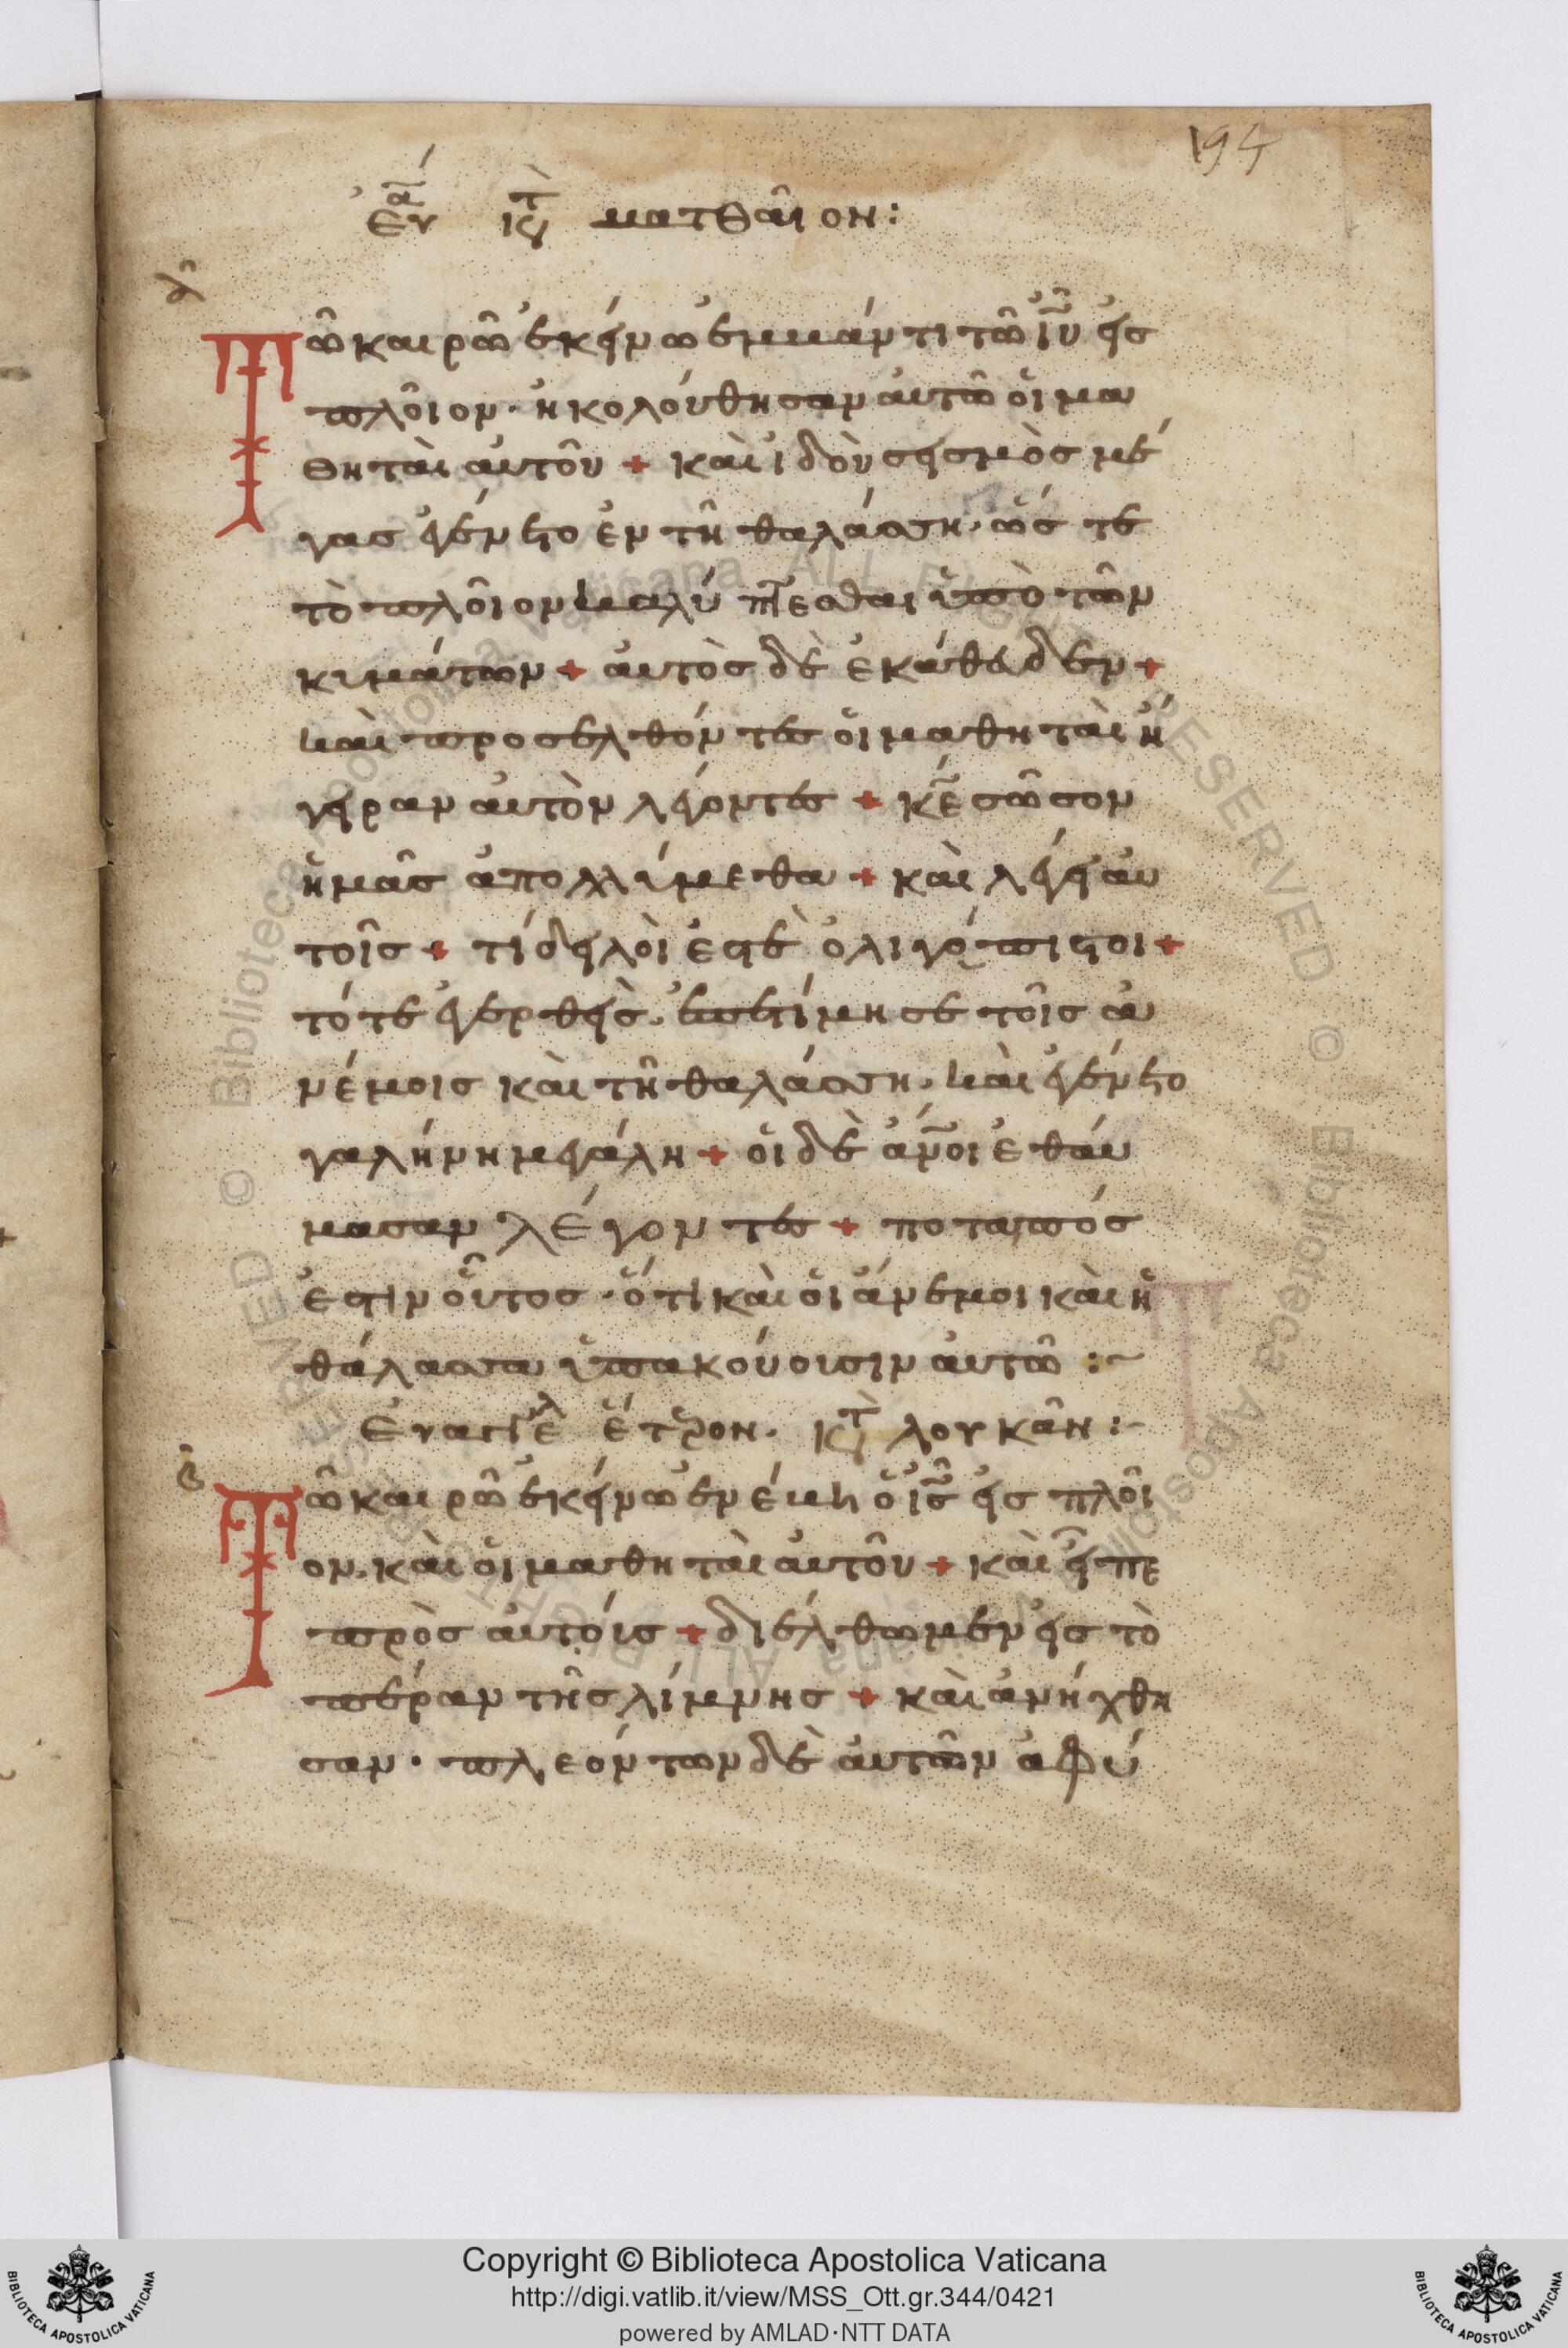 194
ἐυα κτ ματθᾶιον:
α
Τῶ καιρῶ ἐκείνω ἐμμάντι τῶ ἰυ εἰς
πλοῖον· ἠκολούθησαν ἀυτῶ ὁι μα
θητὰι ἀυτοῦ + κὰι ἰδοὺ σεισμὸσ μέ
γασ ἐγένετο ἐν τῆ θαλάσση· ὥσ τε
τὸ πλοῖον καλύπτεσθαι ὑπὸ τῶν
κυμάτων + ἀυτὸσ δὲ ἐκάθευδεν +
κὰι προσελθόντεσ ὁι μαθητὰι ἤ
γειραν ἀυτὸν λέγοντεσ + κε σῶσον
ἡμᾶσ ἀπολλύμεθα + κὰι λέγει ἀυ
τοῖσ + τί δειλοὶ ἐστὲ ὀλιγόπιστοι +
τότε ἐγερθεὶσ· ἐπετίμησε τοῖσ ἀ
νέμοισ κὰι τῆ θαλάσση· κὰι ἐγένετο
γαλήνη μεγάλη + ὁι δὲ ἀνοι ἐθάυ
μασαν λέγοντεσ + ποταπόσ
ἐστιν οὗτοσ· ὅτι κὰι ὁι ἄνεμοι κὰι ἡ
θάλασσα ὑπακούουσιν ἀυτῶ :~
Ἐυαγγέλ ἕτερον· κτ λουκᾶν :-
β
Τῶ καιρῶ ἐκείνω ἐνέβη ὁ ἰσ εἰσ πλοῖ
ον· κὰι ὁι μαθητὰι ἀυτοῦ + κὰι εἶπε
πρὸσ ἀυτόυσ + διέλθωμεν εἰσ τὸ
πέραν τῆσ λίμνησ + κὰι ἀνήχθη
σαν· πλεόντων δὲ ἀυτῶν ἀφύ
Copyright © Biblioteca Apostolica Vaticana
http://digi.vatlib.it/view/MSS_Ott.gr.344/0421
powered by AMLAD·NTT DATA